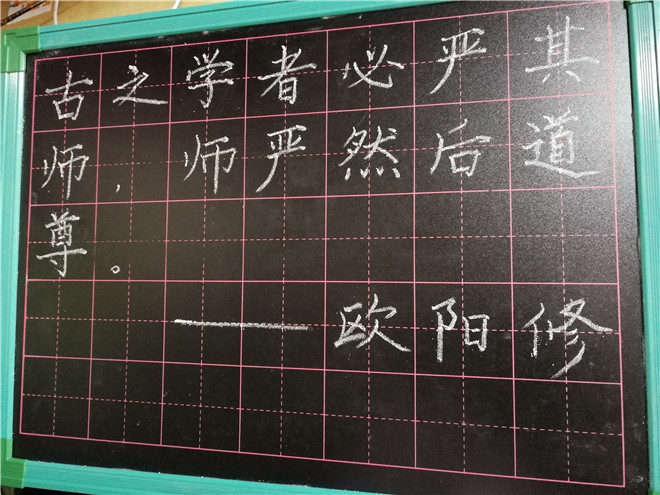 古之学者必严其
师，师严然后道
尊。
——欧阳修